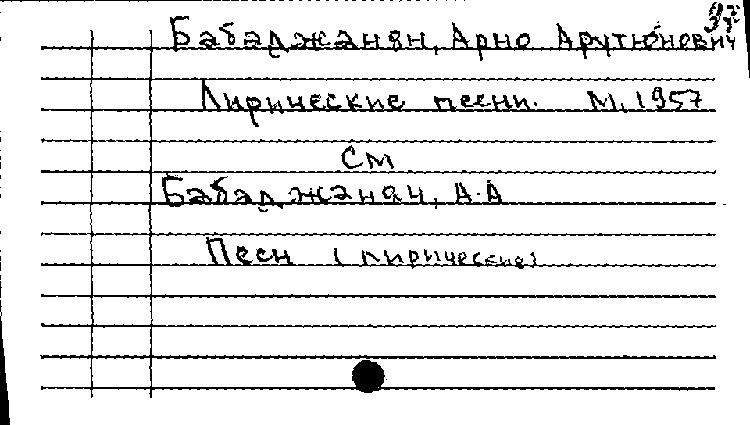 Бабаджанян, Арно Арутюнович
Лирические песни. М. 1957
См
Бабаджанян, А.А
Песн (лирические)